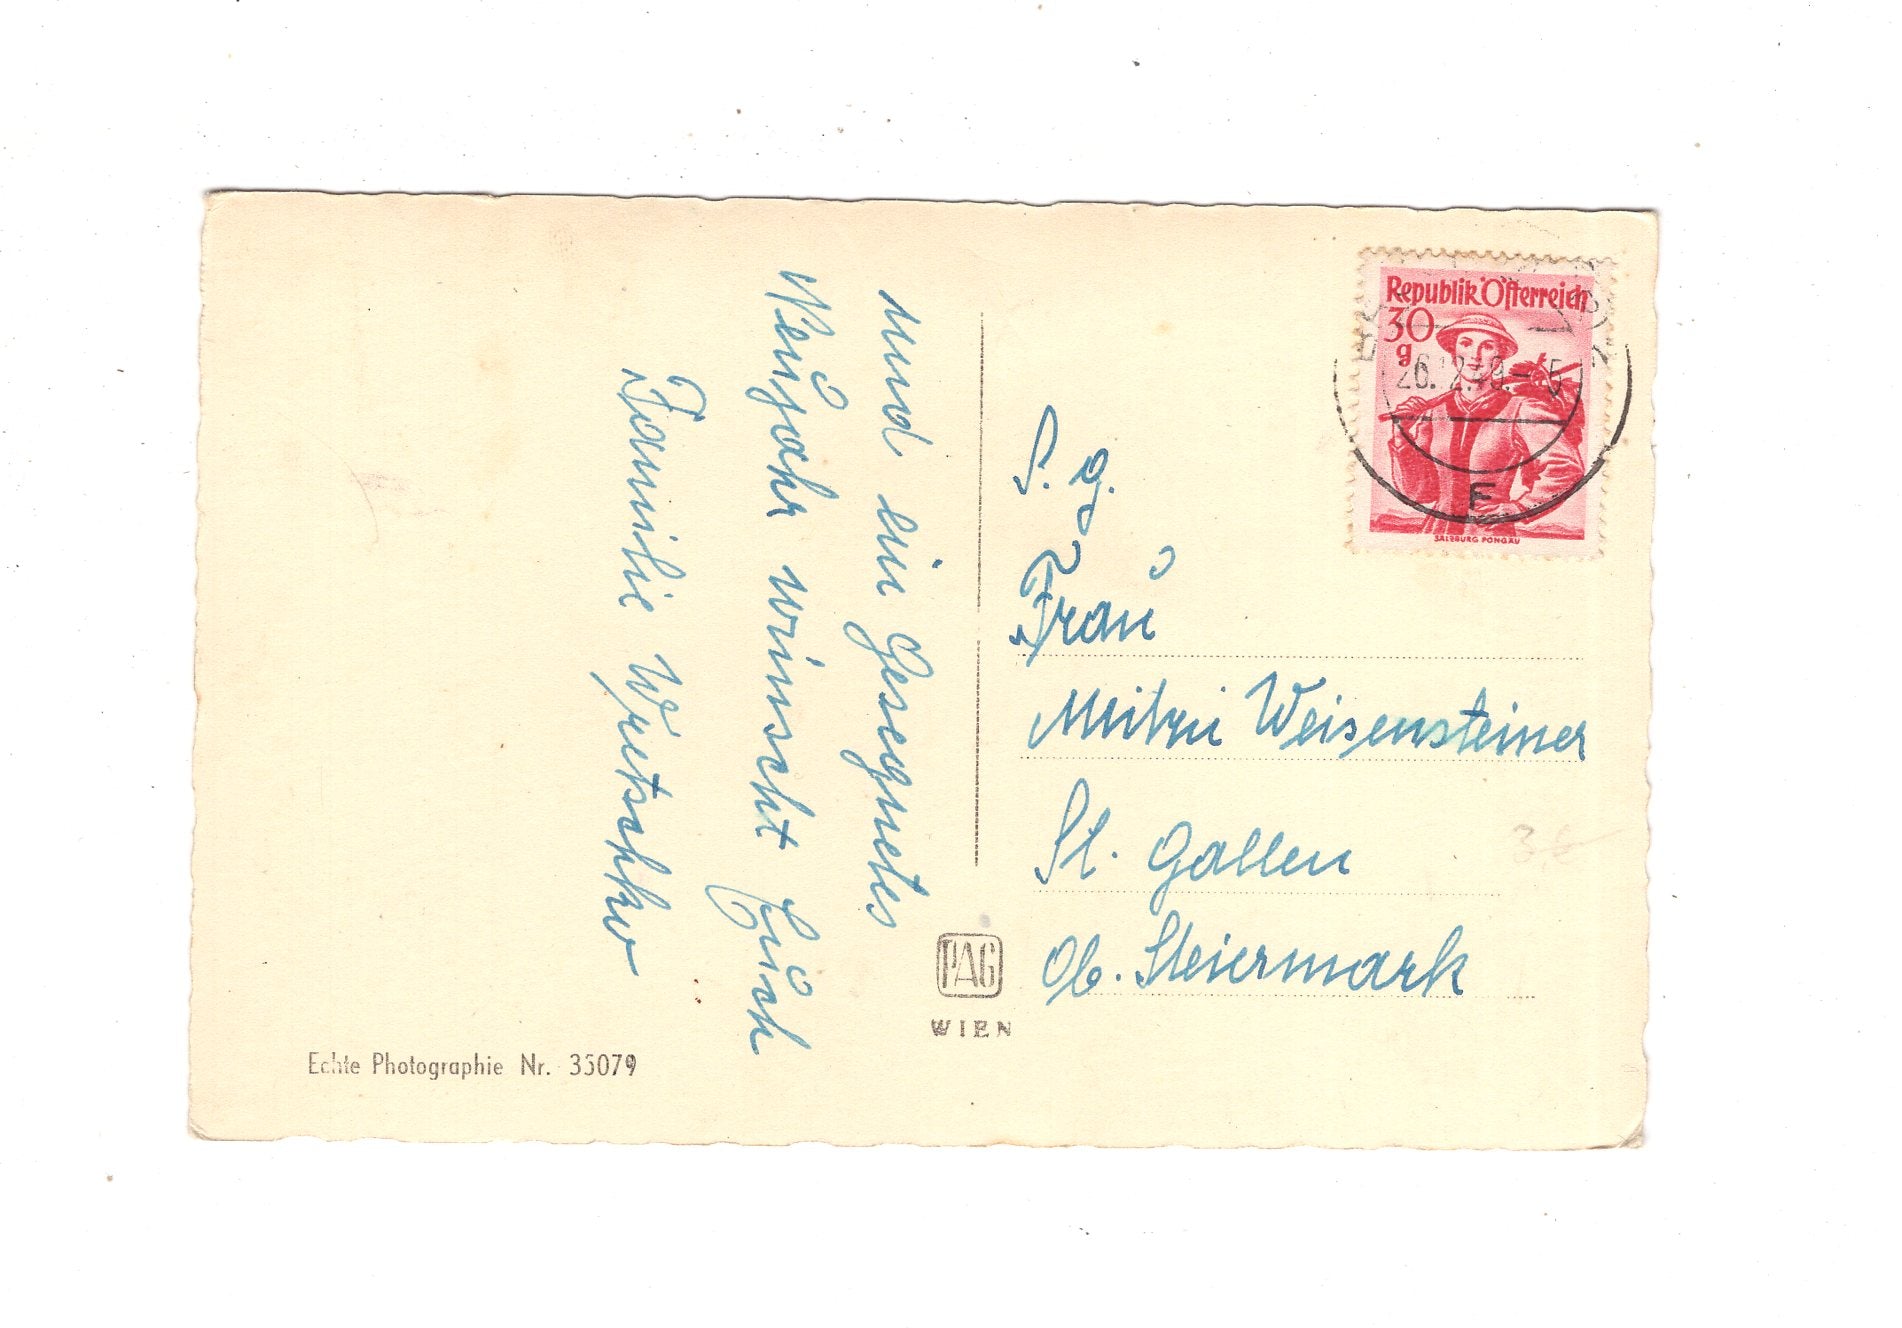 und ein Gesegnetes
Neujahr winscht Euch
Familie Wretschko
Echte Photographie Nr. 35079
PAG
WIEN
Republik Österreich
30
g
SALZBURG PONGAU
26.12.49.-5
F
S. g.
Frau
Mitzi Weisensteiner
St. Gallen
Ob. Steiermark